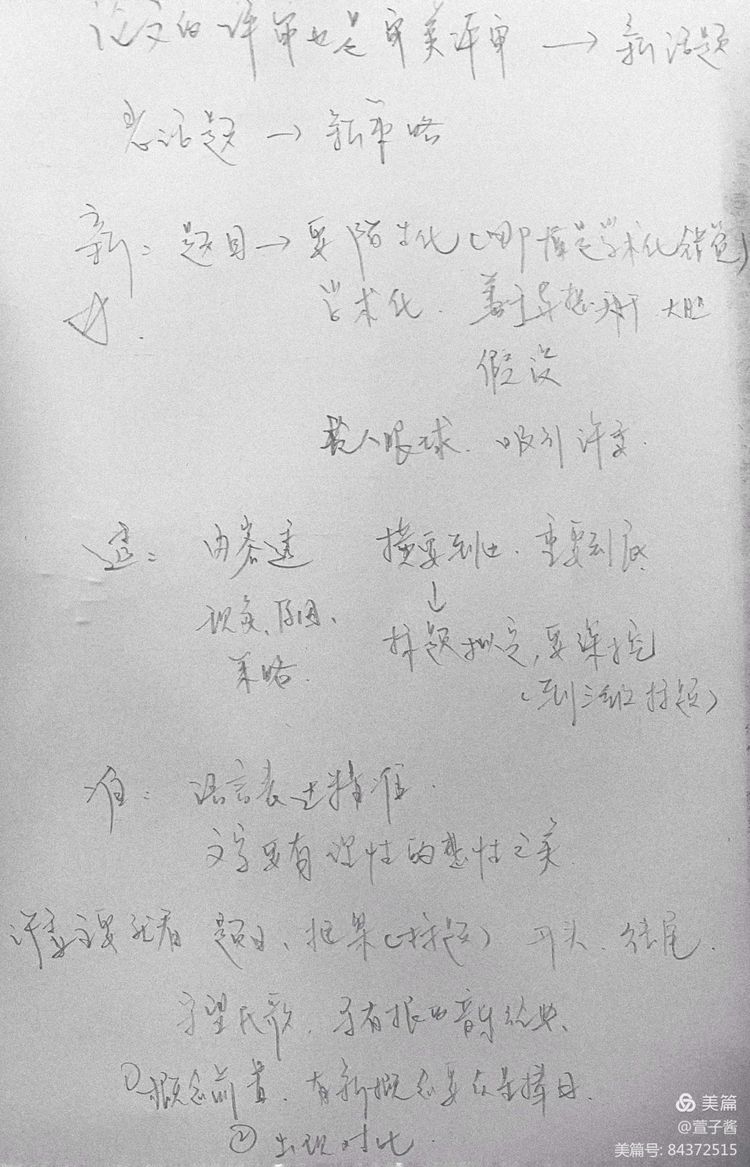 论文的评审也是审美评审 → 新话题
老话题 → 新策略
新: 题目 → 要陌生化(哪怕是学术化错觉)
学术化. 大胆
假设
抓人眼球. 吸引评委.
透: 内容透 横要到边. 重要到底
现象、原因、 ↓
策略. 标题拟定,要深挖
(到三级标题)
准: 语言表达精准.
文字要有理性的整性之美
评委主要就看 题目、框架(标题) 开头. 结尾.
守望民歌. 享有根的音乐经典、
①概念前置. 有新概念要众星捧月.
② 出现对比
美篇
@萱子酱
美篇号: 84372515